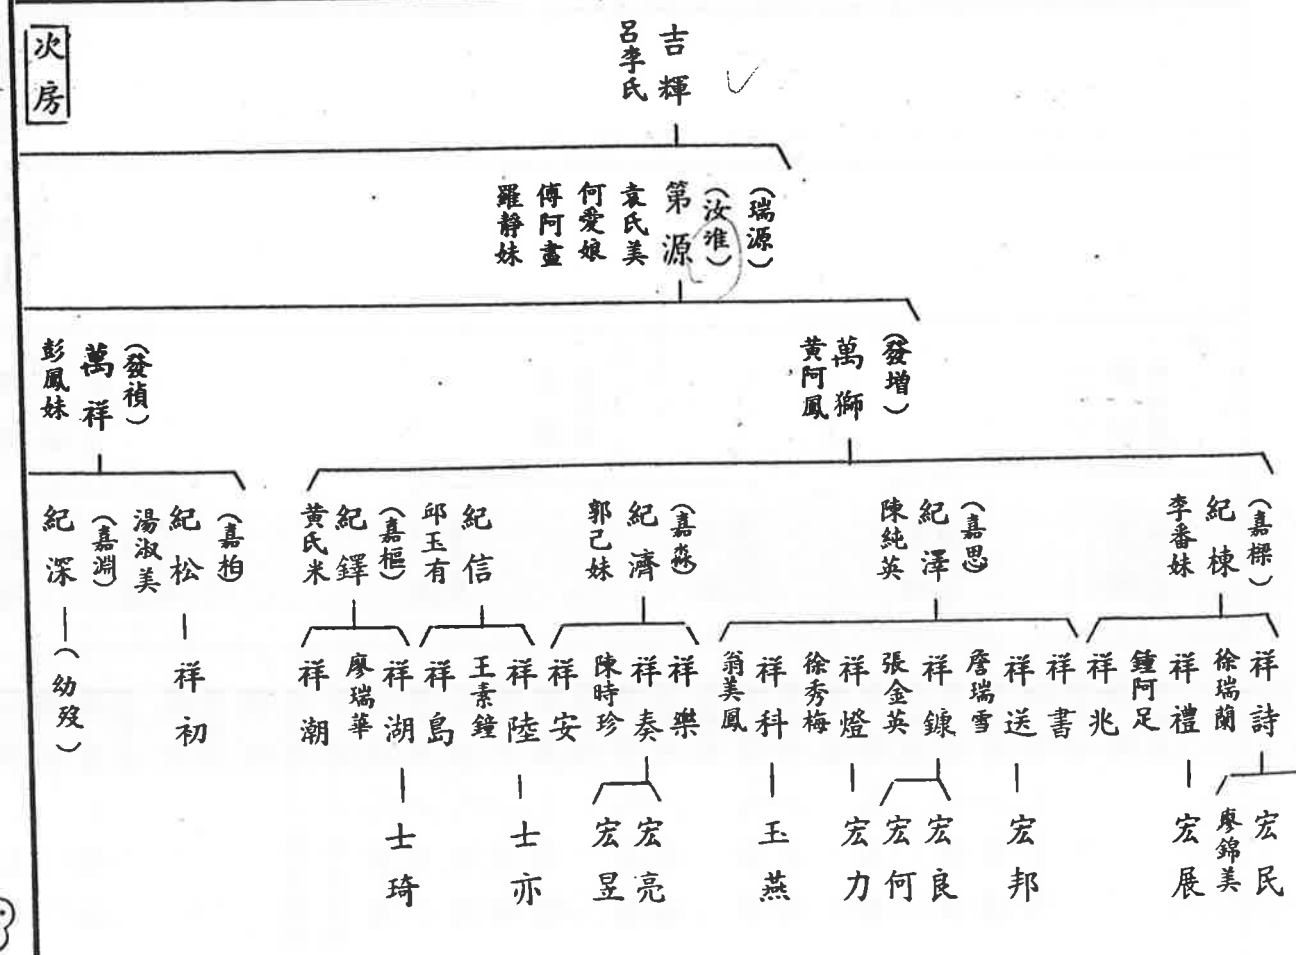 次房
吉輝
呂李氏
（瑞源）
（汝淮）
第源
袁氏美
何愛娘
傅阿畫
羅靜妹
（發增）
萬獅
黃阿鳳
（發禎）
萬祥
彭鳳妹
（嘉樑）
紀棟
李番妹
（嘉思）
紀澤
陳純英
（嘉淼）
紀濟
郭己妹
紀信
邱玉有
（嘉樞）
紀鐸
黃氏米
（嘉柏）
紀松
湯淑美
（嘉淵）
紀深
祥詩
徐瑞蘭
祥禮
鍾阿足
祥兆
祥書
祥送
詹瑞雪
祥鏮
張金英
祥燈
徐秀梅
祥科
翁美鳳
祥樂
祥奏
陳時珍
祥安
祥陸
王素鐘
祥島
祥湖
廖瑞華
祥潮
祥初
（幼歿）
宏民
廖錦美
宏展
宏邦
宏良
宏何
宏力
玉燕
宏亮
宏昱
士亦
士琦